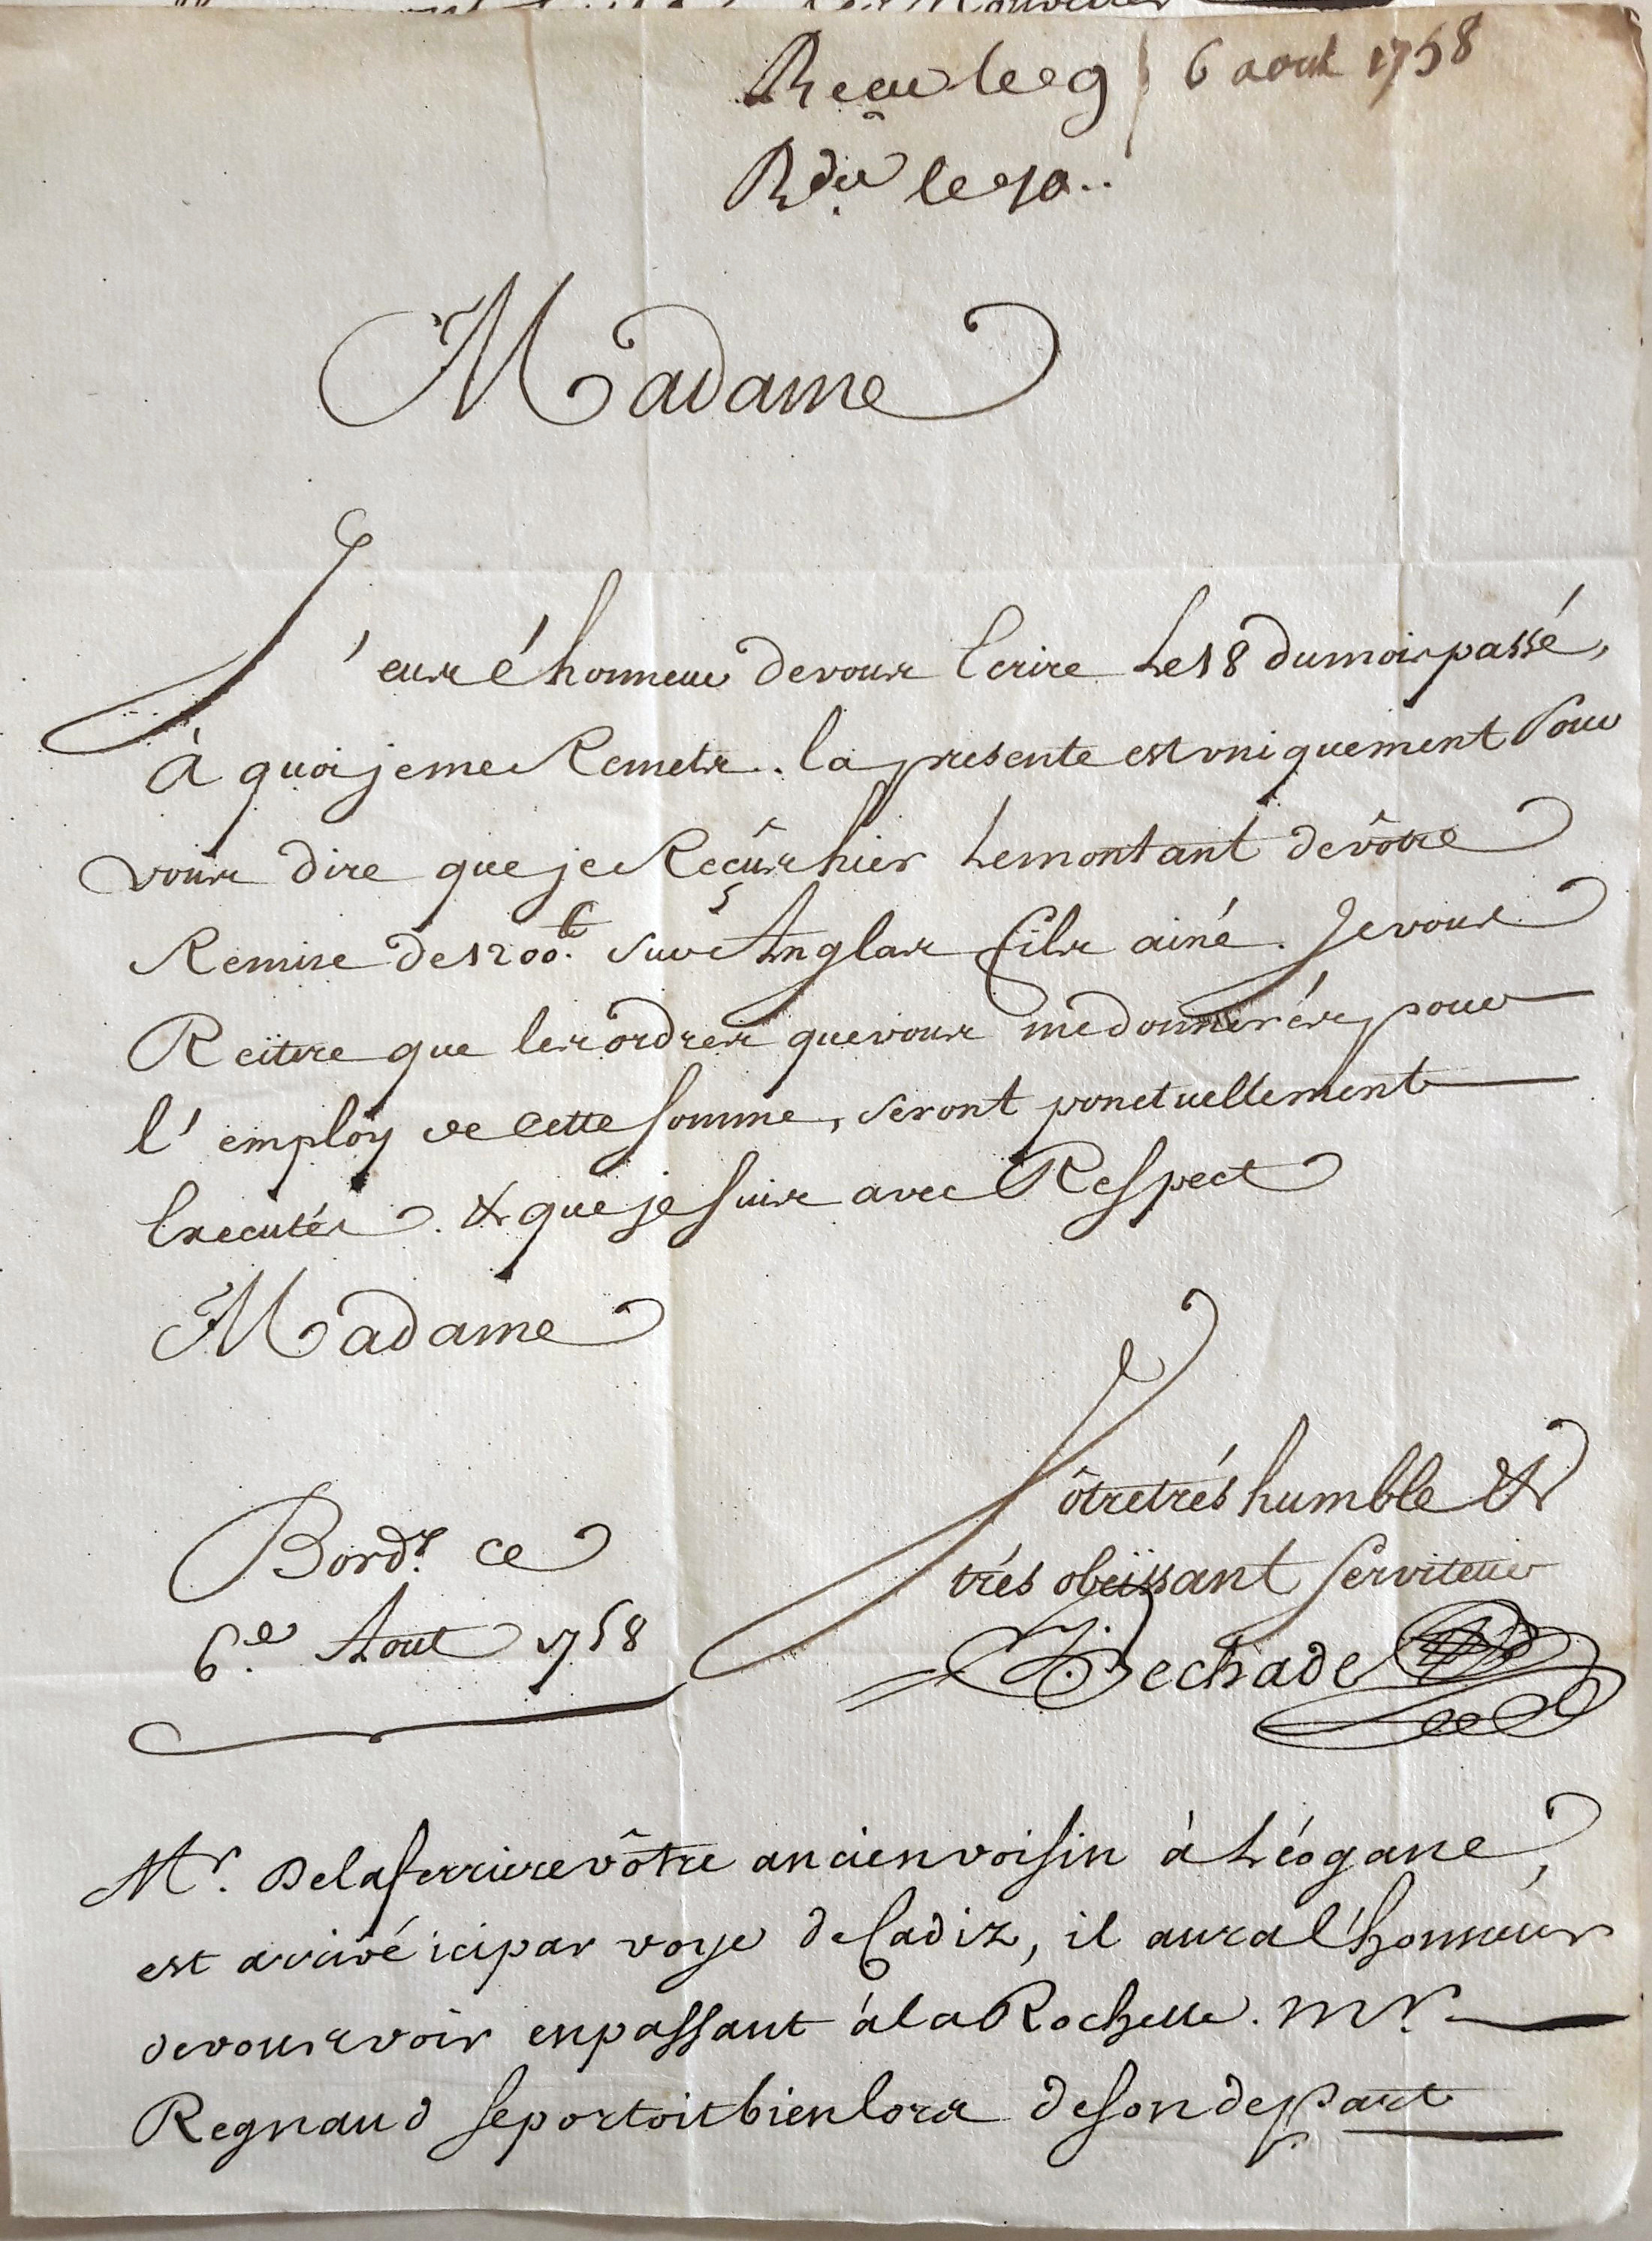 Recu le 9 6 aout 1758
Rdu le 10..
Madame
J'eus l'honneur de vous Ecrire Le 18 du mois passé,
À quoi je me Remets.. la presente est uniquement Pour
vous dire que je Reçûs hier Le montant de vôtre
Remise de 1200.lt Sur Anglas fils ainé. Je vous
Reitere que les ordres que vous me donnerés pour
l'employ de cette somme, seront ponctuellement
Executés. & que je suis avec Respect
Madame
Vôtre trés humble &
trés obeïssant serviteur
Bordx. ce
6.e Aout 1758
Bechade
Mr. Delaferriere vôtre ancien voisin à Léogane,
est arrivé ici par voye de Cadiz, il aura l'honneur
de vous voir en passant à la Rochelle. Mr.
Regnaud se portoit bien lors de son depart